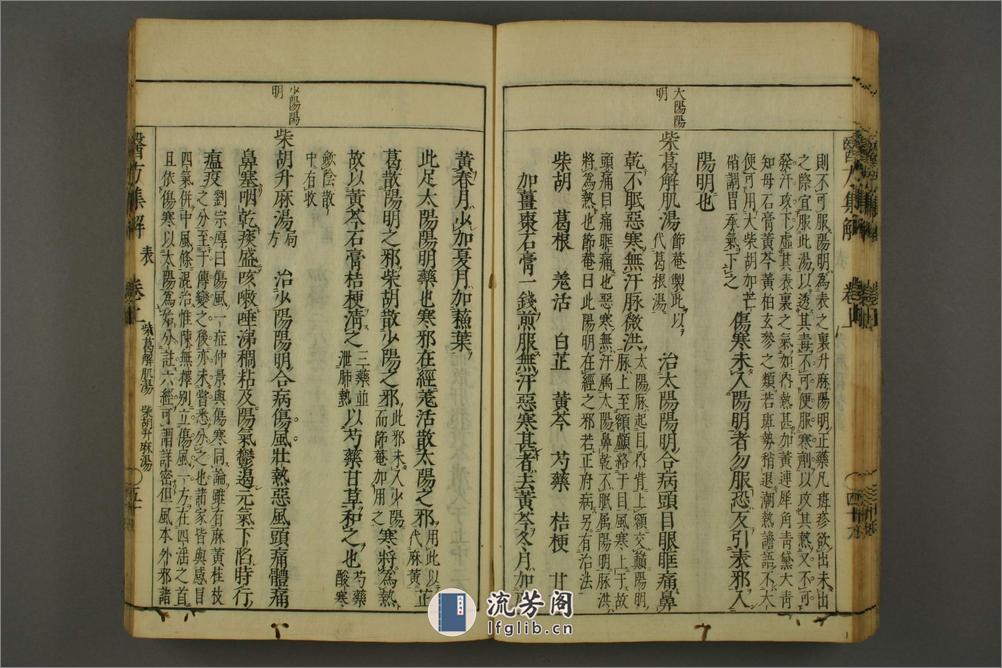 則不可服陽明爲表之裏升麻陽明正藥凡斑疹欲出未出
之際宜服此湯以透其毒不可便服寒劑以攻其熱又不可
發汗攻下虛其表裏之氣如內熱甚加黃連犀角青黛大青
知母石膏黃芩黃柏玄參之類若斑勢稍退潮熱譫語不大
便可用大柴胡加芒硝調胃承氣下之
傷寒未入陽明者勿服恐反引表邪入
陽明也
太陽陽明
柴葛解肌湯
節菴製此以代葛根湯
治太陽陽明合病頭目眼眶痛鼻
乾不眠惡寒無汗脉微洪
太陽脉起目內眥上額交巔陽明脉上至額顱絡于目風寒上干故
頭痛目痛眶痛也惡寒無汗屬太陽鼻乾不眠屬陽明脉洪
將爲熱也節菴曰此陽明在經之邪若正府病另有治法
柴胡 葛根 羌活 白芷 黃芩 芍藥 桔梗 甘
加薑棗石膏一錢煎服無汗惡寒甚者去黃芩冬月加
黃春月少加夏月加蘇葉
此足太陽陽明藥也寒邪在經羌活散太陽之邪
用此以代麻黃
芷
葛散陽明之邪柴胡散少陽之邪
此邪未入少陽而節菴加用之
寒將爲熱
故以黃芩石膏桔梗清之
三藥並泄肺熱
以芍藥甘草和之也
芍藥酸寒
歛陰散中有收
少陽陽明
柴胡升麻湯
局方
治少陽陽明合病傷風壯熱惡風頭痛體痛
鼻塞咽乾痰盛咳嗽唾涕稠粘及陽氣鬱遏元氣下陷時行
瘟疫
劉宗厚曰傷風一症仲景與傷寒同論雖有麻黃桂枝
之分至于傳變之後亦未嘗悉分之也諸家皆與感目
四氣併中風條混治惟陳無擇別立傷風一方在四淫之首
且依傷寒以太陽爲始分註六經可謂詳密但風本外邪諸
醫方集解 表 卷上 柴葛解肌湯 柴胡升麻湯 五十
醫方集解 卷上 四十九
流芳阁
lfglib.cn